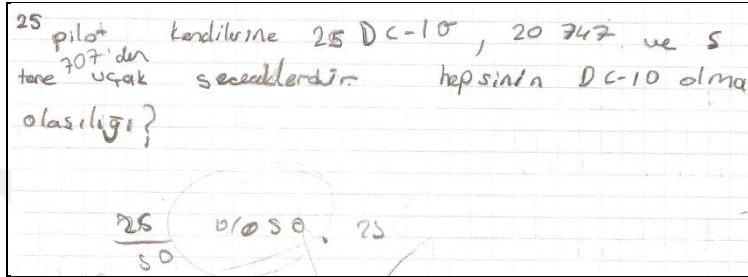 25 pilot kendilerine 25 DC-10, 20 747 ve 5
tane 707'den uçak seceeklerdir. hepsinin DC-10 olma
olasılığı?
25 %50. 25
50